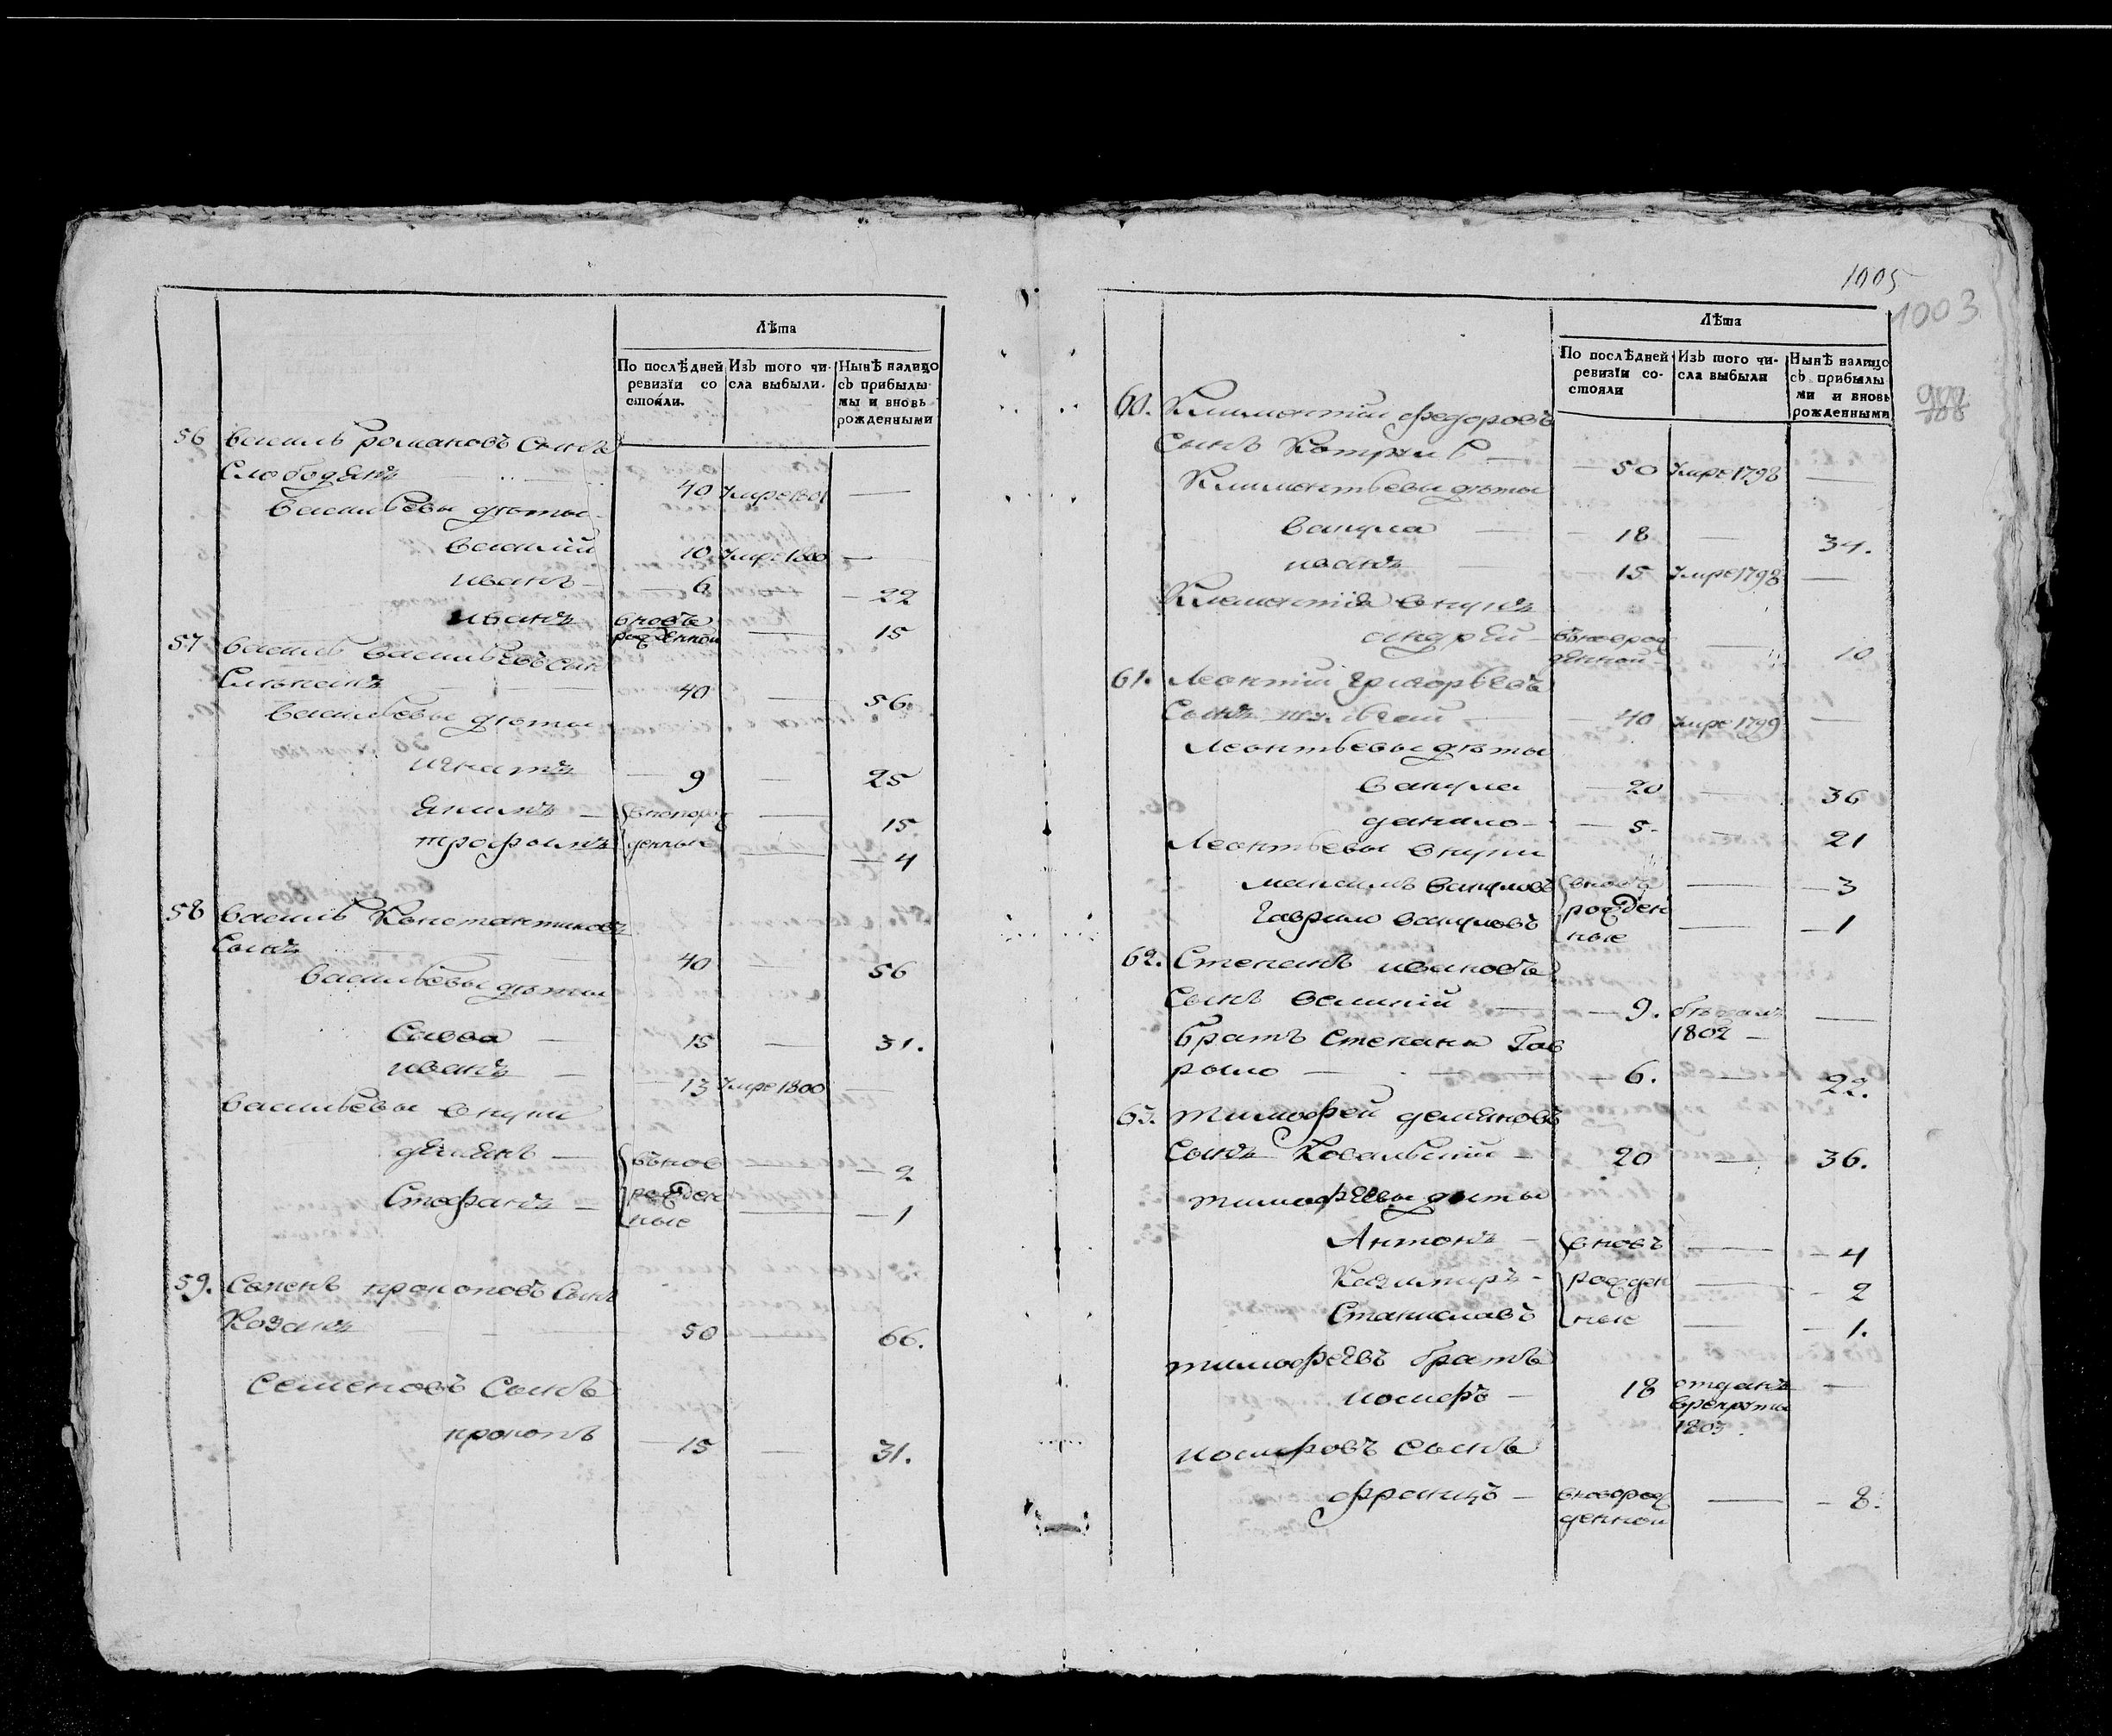 Лѣта
По послѣдней ревизїи со стояли.
Изъ того чи- сла выбыли.
Нынѣ налицо съ прибылы- мы и вновь рожденными
56 василь романовъ сынъ
Слободянъ 40 Умре 1801 —
васильевы дѣти
василий 10 Умре 1800 —
иванъ — 6 — 22
иванъ вновь рожденной — 15
57 василь васильевъ сын
40 — 56.
васильевы дѣти
игнатъ — 9 — 25
якимъ — вноворож — 15.
трофимъ денные — 4
58 василь Константиновъ
Сынъ 40 — 56
васильевы дѣти
Савва — 15 — 31.
иванъ — 13 Умре 1800 —
васильевы внуки
демянъ — вънов — 2
Стефанъ — рожден ные — 1
59. Семенъ прокоповъ Сынъ
Козакъ — 50 — 66.
Семеновъ Сынъ
прокопъ — 15 — 31.
1005
1003
Лѣта
По послѣдней ревизїи со- стояли
Изъ того чи- сла выбыли
Нынѣ налицо съ прибылы ми и вновь рожденными
60. Климентий федоровъ
Сынъ — 50 Умре 1798 —
Климентьевы дѣти
вакула — 18 — 34.
иванъ — 15 Умре 1798 —
Климентия внукъ
андрей — вьноврож денной — 10
61. Леонтий григорьевъ
Сынъ — 40 умре 1799 —
Леонтьевы дѣти
вакула — 20 — 36
данило — 5 — 21
Леонтьевы внуки
максимъ вакуловъ вновь — 3
Гаврило вакуловъ рожден ные — 1
62. Степанъ ивановъ
Сынъ — 9. бежалъ 1802 —
братъ Степана Гав
рыло — 6. — 22.
63. тимофей демяновъ
Сынъ Ковальский — 20 — 36.
тимофеевы дети
Антонъ — вновь — 4
Казимиръ — рожден — 2
Станиславъ ные — 1.
тимофеевъ братъ
иосифъ — 18 отданъ врекруты 1803. —
иосифовъ сынъ
францъ — вноврож денной — 8.